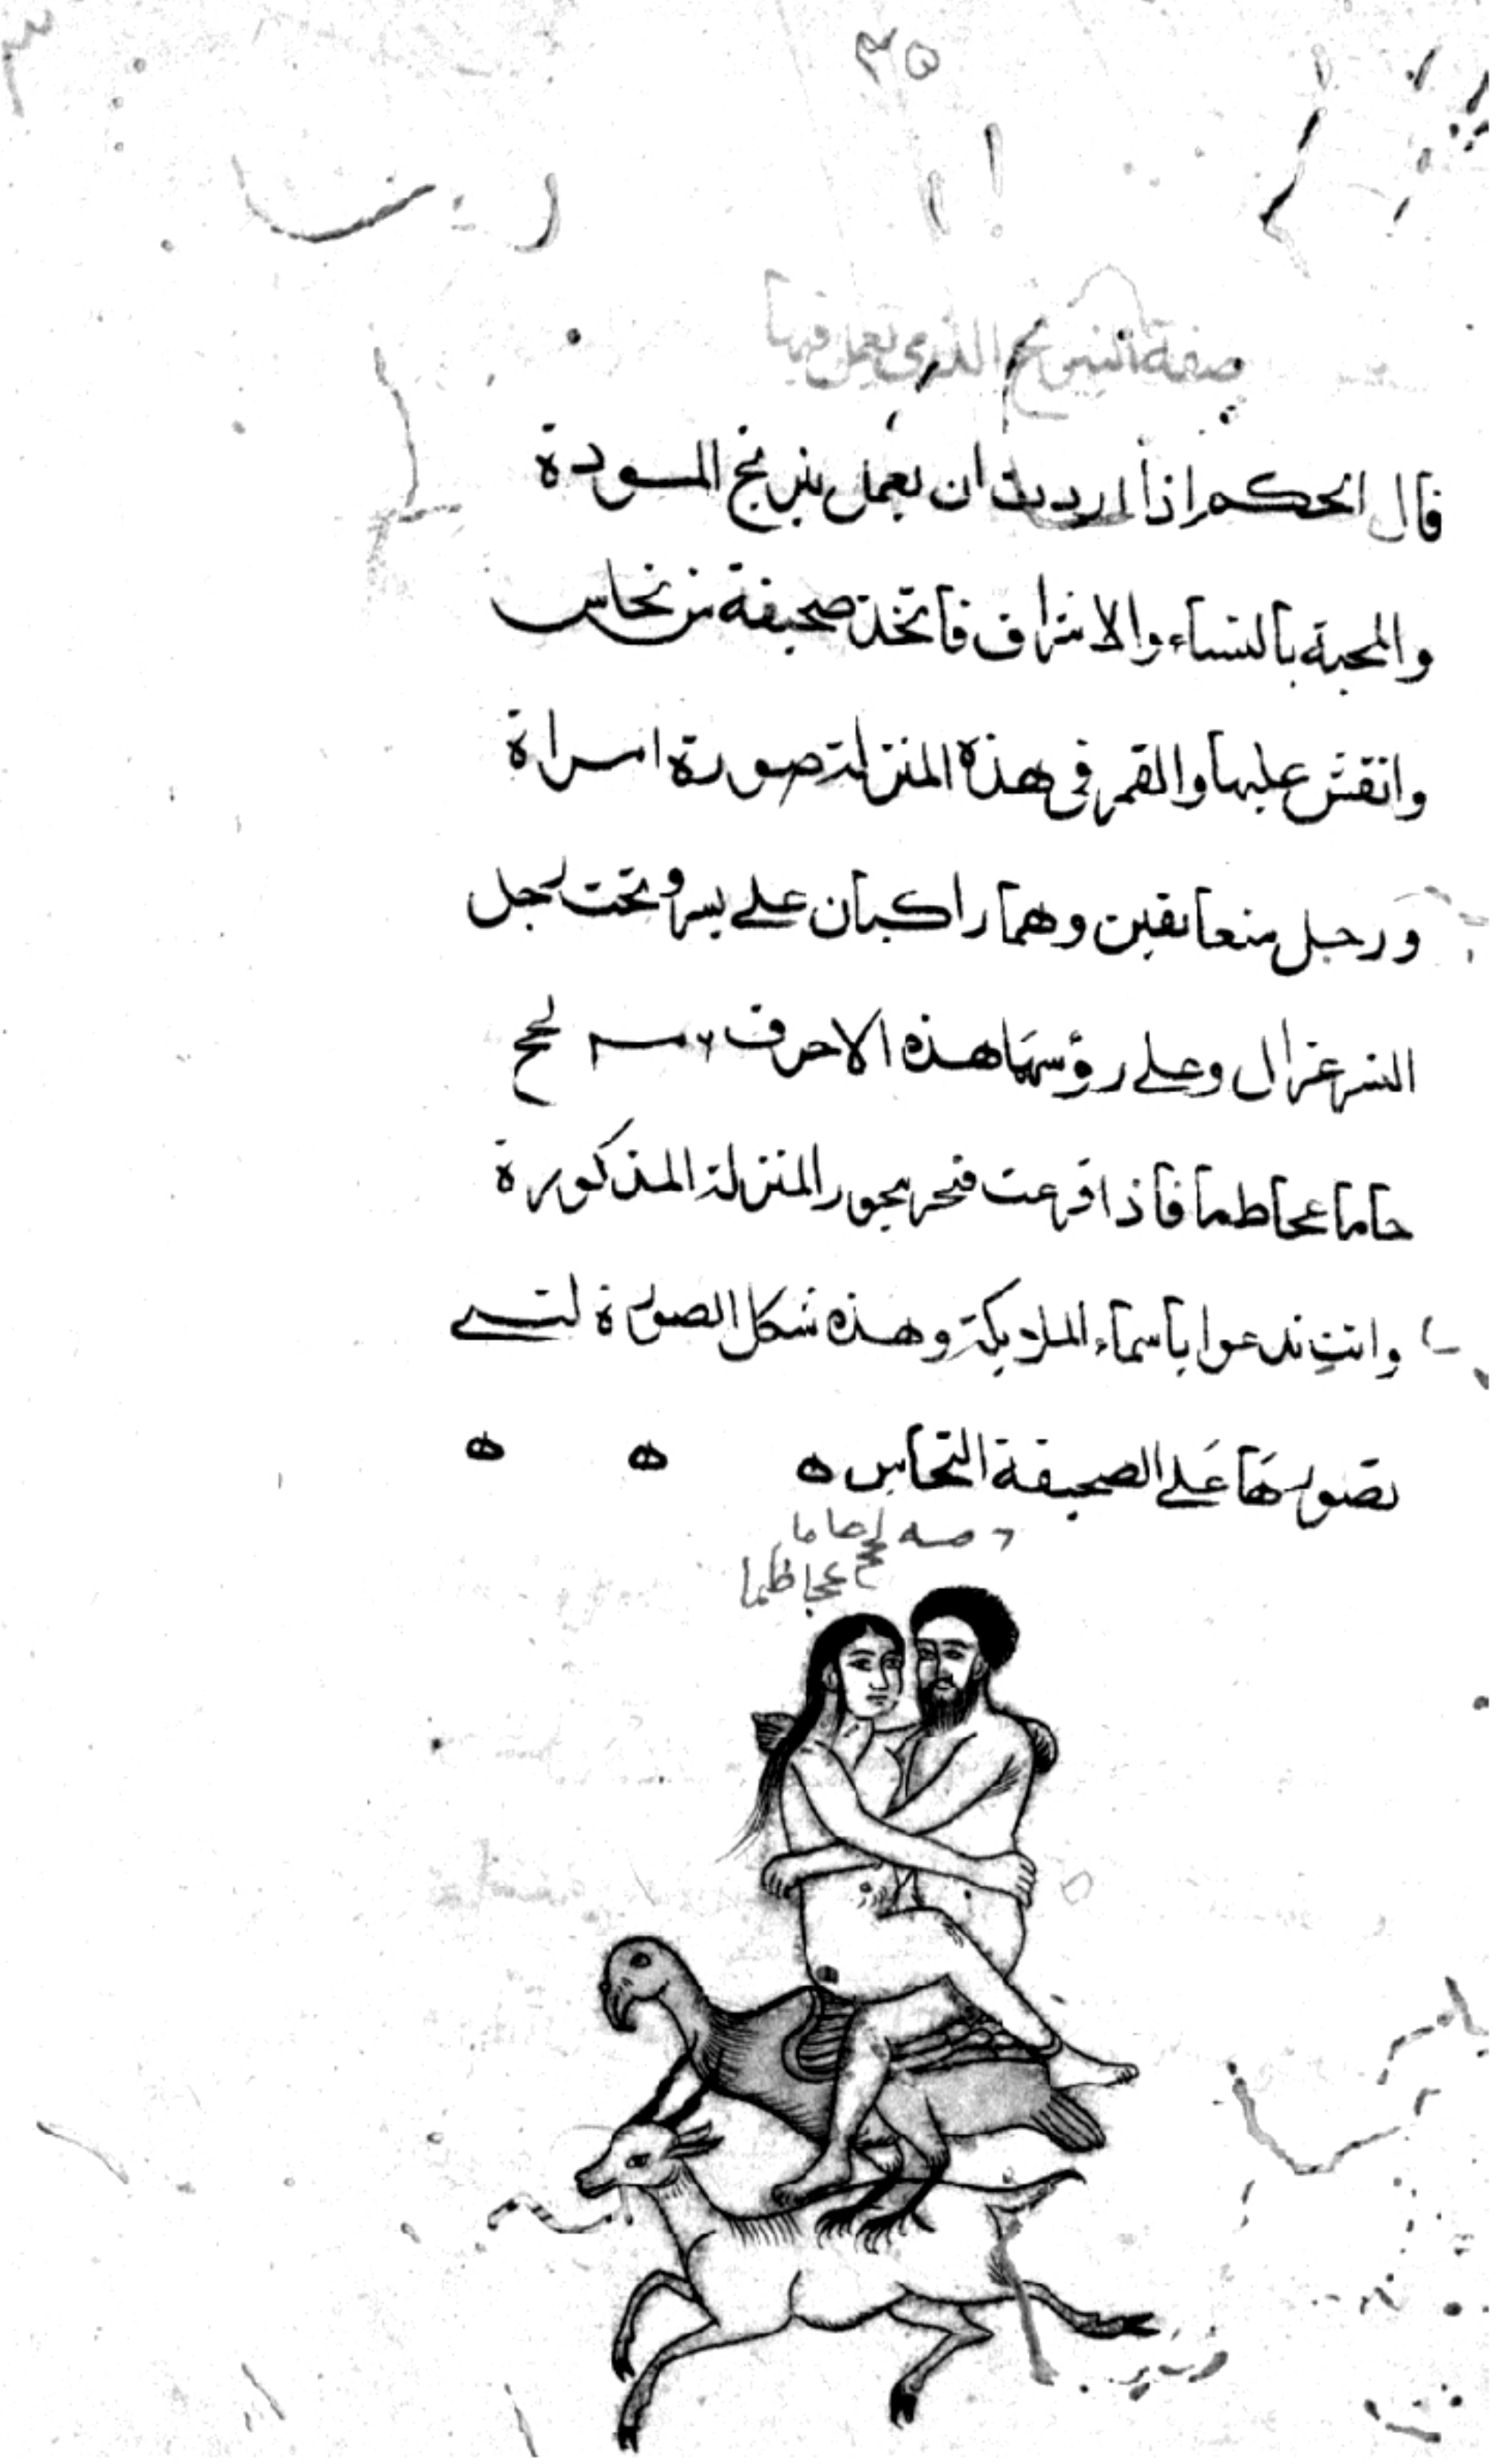 ٣٥
صفة النيرنج الذى يعمل فيها
قال الحكيم اذا اردت ان تعمل نيرنج المودة
والمحبة بالنساء والاشراف فاتخذ صحيفة من نحاس
وانقش عليها والقمر فى هذه المنزلة صورة امراة
ورجل متعانقين وهما راكبان على نسر وتحت رجل
النسر غزال وعلى رؤسهما هذه الاحرف
حاما عجاطما فاذا فرغت فبخر ببخور المنزلة المذكورة
وانت تدعوا باسماء الملايكة وهذه شكل الصورة لتى
تصورها على الصحيفة النحاس ه ه ه
حاما
عجاطما